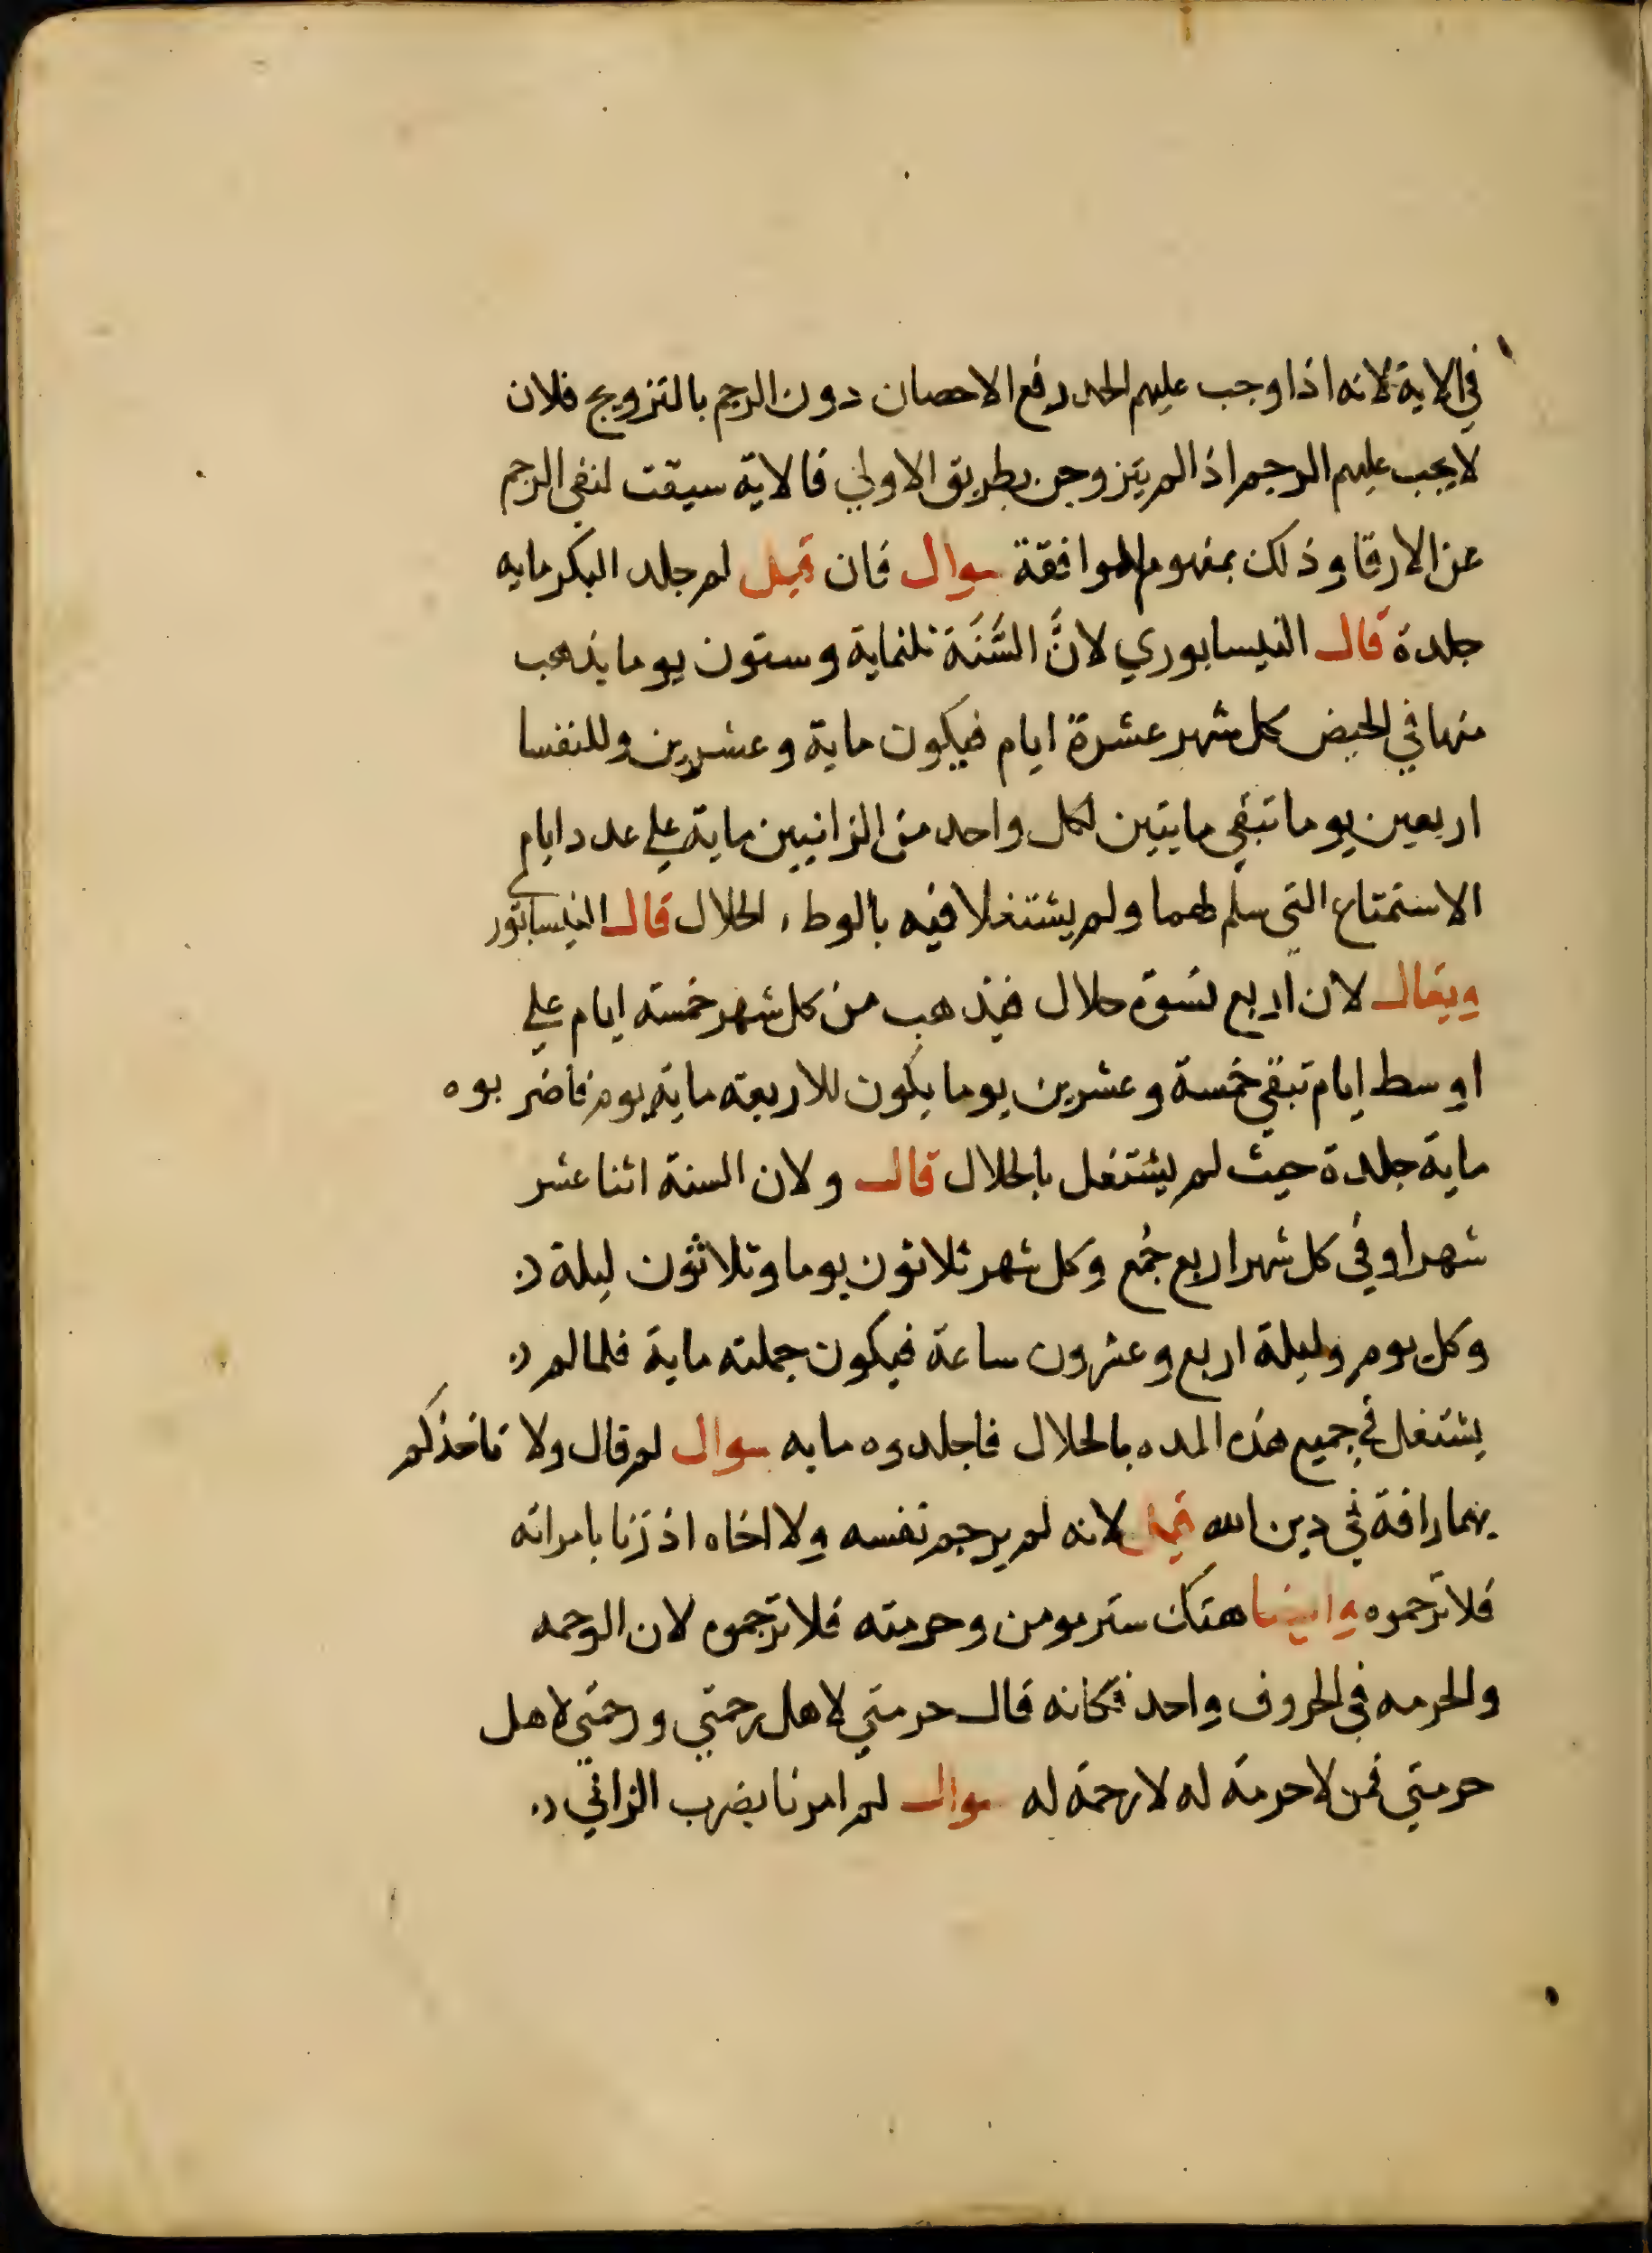 في الاية لانه اذا وجب عليهم الحد رفع الاحصان دون الرجم بالتزويج فلان
لا يجب عليهم الرجم اذا لم يتزوجن بطريق الاولي فالاية سيقت لنفي الرجم
عن الارقا وذلك بمفهوم الموافقة سوال فان قيل لم جلد البكر مايه
جلدة قال النيسابوري لانَّ السَّنَة ثلثماية وستون يوما يذهب
منها في الحيض كل شهر عشرة ايام فيكون ماية وعشرين وللنفسا
اربعين يوما تبقي مايتين لكل واحد من الزانيين ماية علي عدد ايام
الاستمتاع التي سلم لهما ولم يشتغلا فيه بالوطء الحلال قال النيسابوري
ويقال لان اربع نسوة حلال فيذهب من كل شهر خمسة ايام علي
اوسط ايام تبقي خمسة وعشرين يوما يكون للاربعة ماية يوم فاضربوه
ماية جلدة حيث لم يشتغل بالحلال قال ولان السنة اثنا عشر
شهرا وفي كل شهر اربع جُمع وكل شهر ثلاثون يوما وثلاثون ليلة
وكل يوم وليلة اربع وعشرون ساعة فيكون جملته ماية فلما لم
يشتغل في جميع هذه المده بالحلال فاجلدوه مايه سوال لم قال ولا تاخذكم
بهما رافة في دين الله قيل لانه لم يرحم نفسه ولا اخاه اذ زنا بامراته
فلا ترحموه وايضا هتك ستر مومن وحرمته فلا ترحموه لان الرحمه
والحرمه في الحروف واحد فكانه قال حرمتي لاهل رحمتي ورحمتي لاهل
حرمتي فمن لا حرمة له لا رحمة له سوال لم امرنا بضرب الزاني